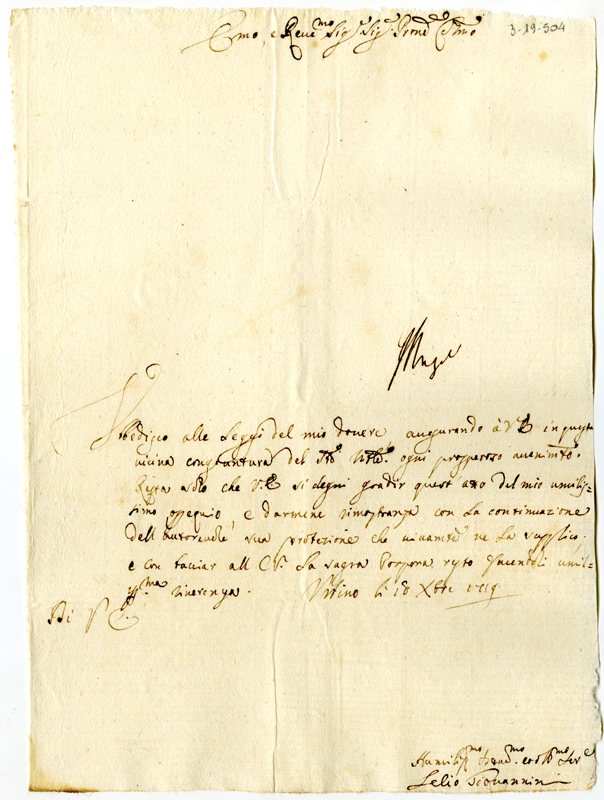 Em͞o, e Reue.mo Sig.r Sig.r Pron͞e
3-19-504
Vbedisco alle leggi del mio douere, augurando à V.E. in questa
uicina congiuntura del S͞to Nat͞le. ogni prospero auuenim͞to.
Resta solo che V.E. si degni gradir quest'atto del mio umilis-
simo ossequio, e darmene rimostranza con la continuazione
dell'autoreuole sua protezione che uiuam͞te ne la supplico.
e con baciar all' la sagra Porpora resto facendoli umil-
iss.ma riuerenza. Vrbino li 18 Xbre
Di V.E.
Humiliss.mo Deuot.mo ed Obb.mo Ser.e
Lelio Giouannini